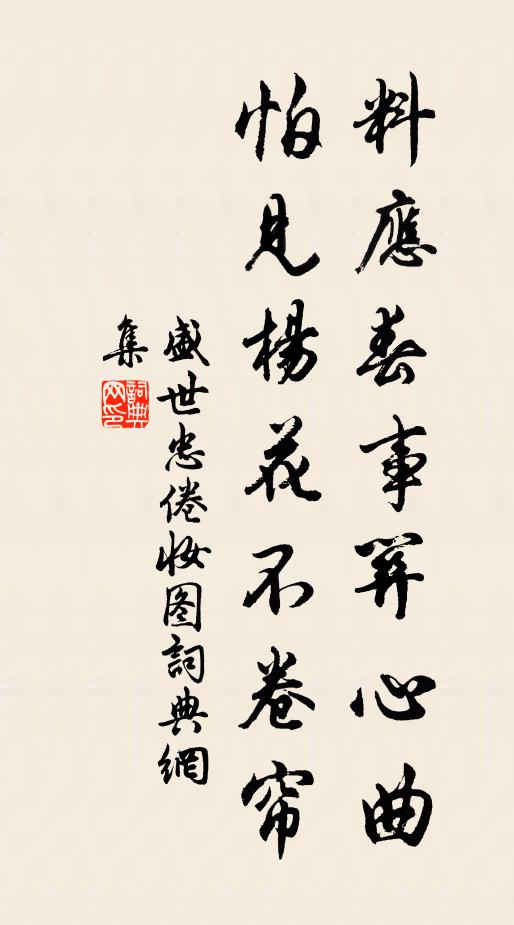 料應春事關心曲
怕見楊花不卷帘
盛世忠倦妆图詞典網
集
詞典网印